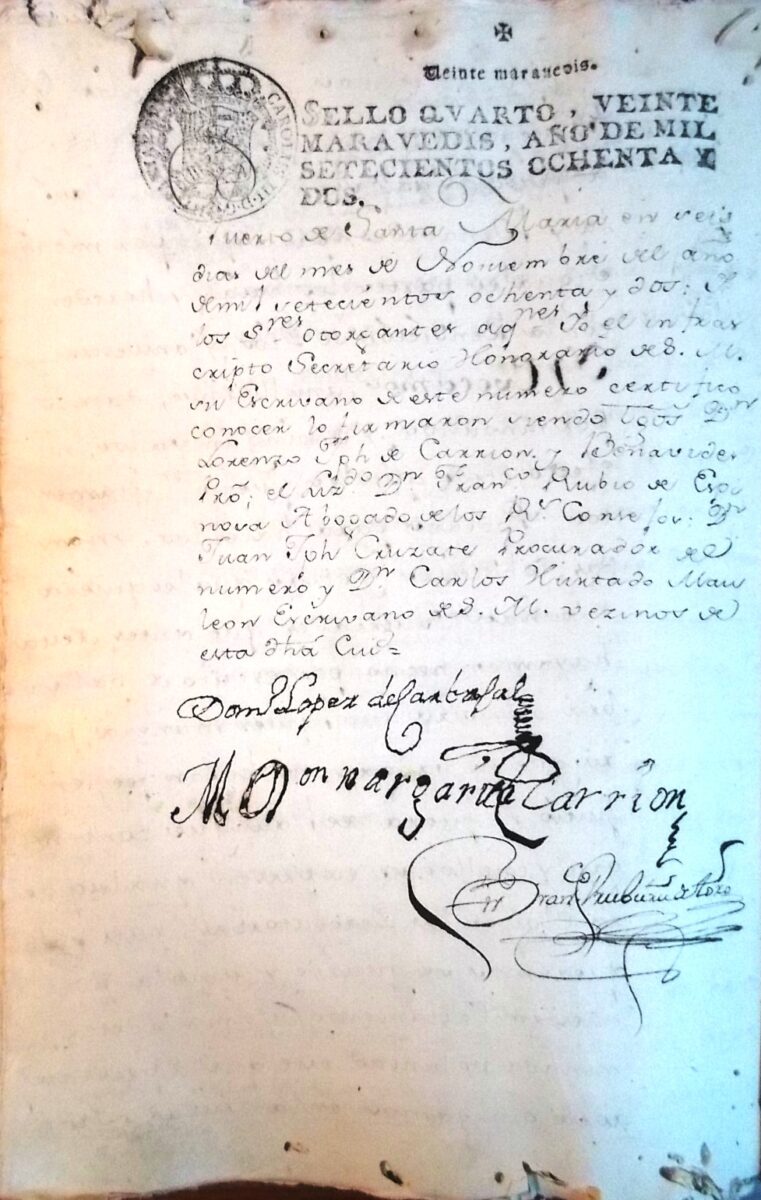 Veinte maravedis.
SELLO QVARTO, VEINTE
MARAVEDIS, AÑO DE MIL
SETECIENTOS OCHENTA Y
DOS.
CAROLUS III D. G.
Puerto de Santa Maria en seis
dias del mes de Noviembre del año
de mil setecientos ochenta y dos: A
los Sres otorgantes aqnes Yo el infras
cripto Secretario Honorario de S. M.
su Escrivano de este numero certifico
conocer lo firmaron siendo tgos Dn
Lorenzo Jph de Carrion y Benavides
Pro; el Lizdo Dn Franco Rubio de Espi
nova Abogado de los Rs Consejos: Dn
Juan Jph Cruzate Procurador del
numero y Dn Carlos Hurtado Mau
leon Escrivano de S. M. vezinos de
esta dha Ciud=
Domo Lopez de Carbajal
Margarita Carrion
Franco